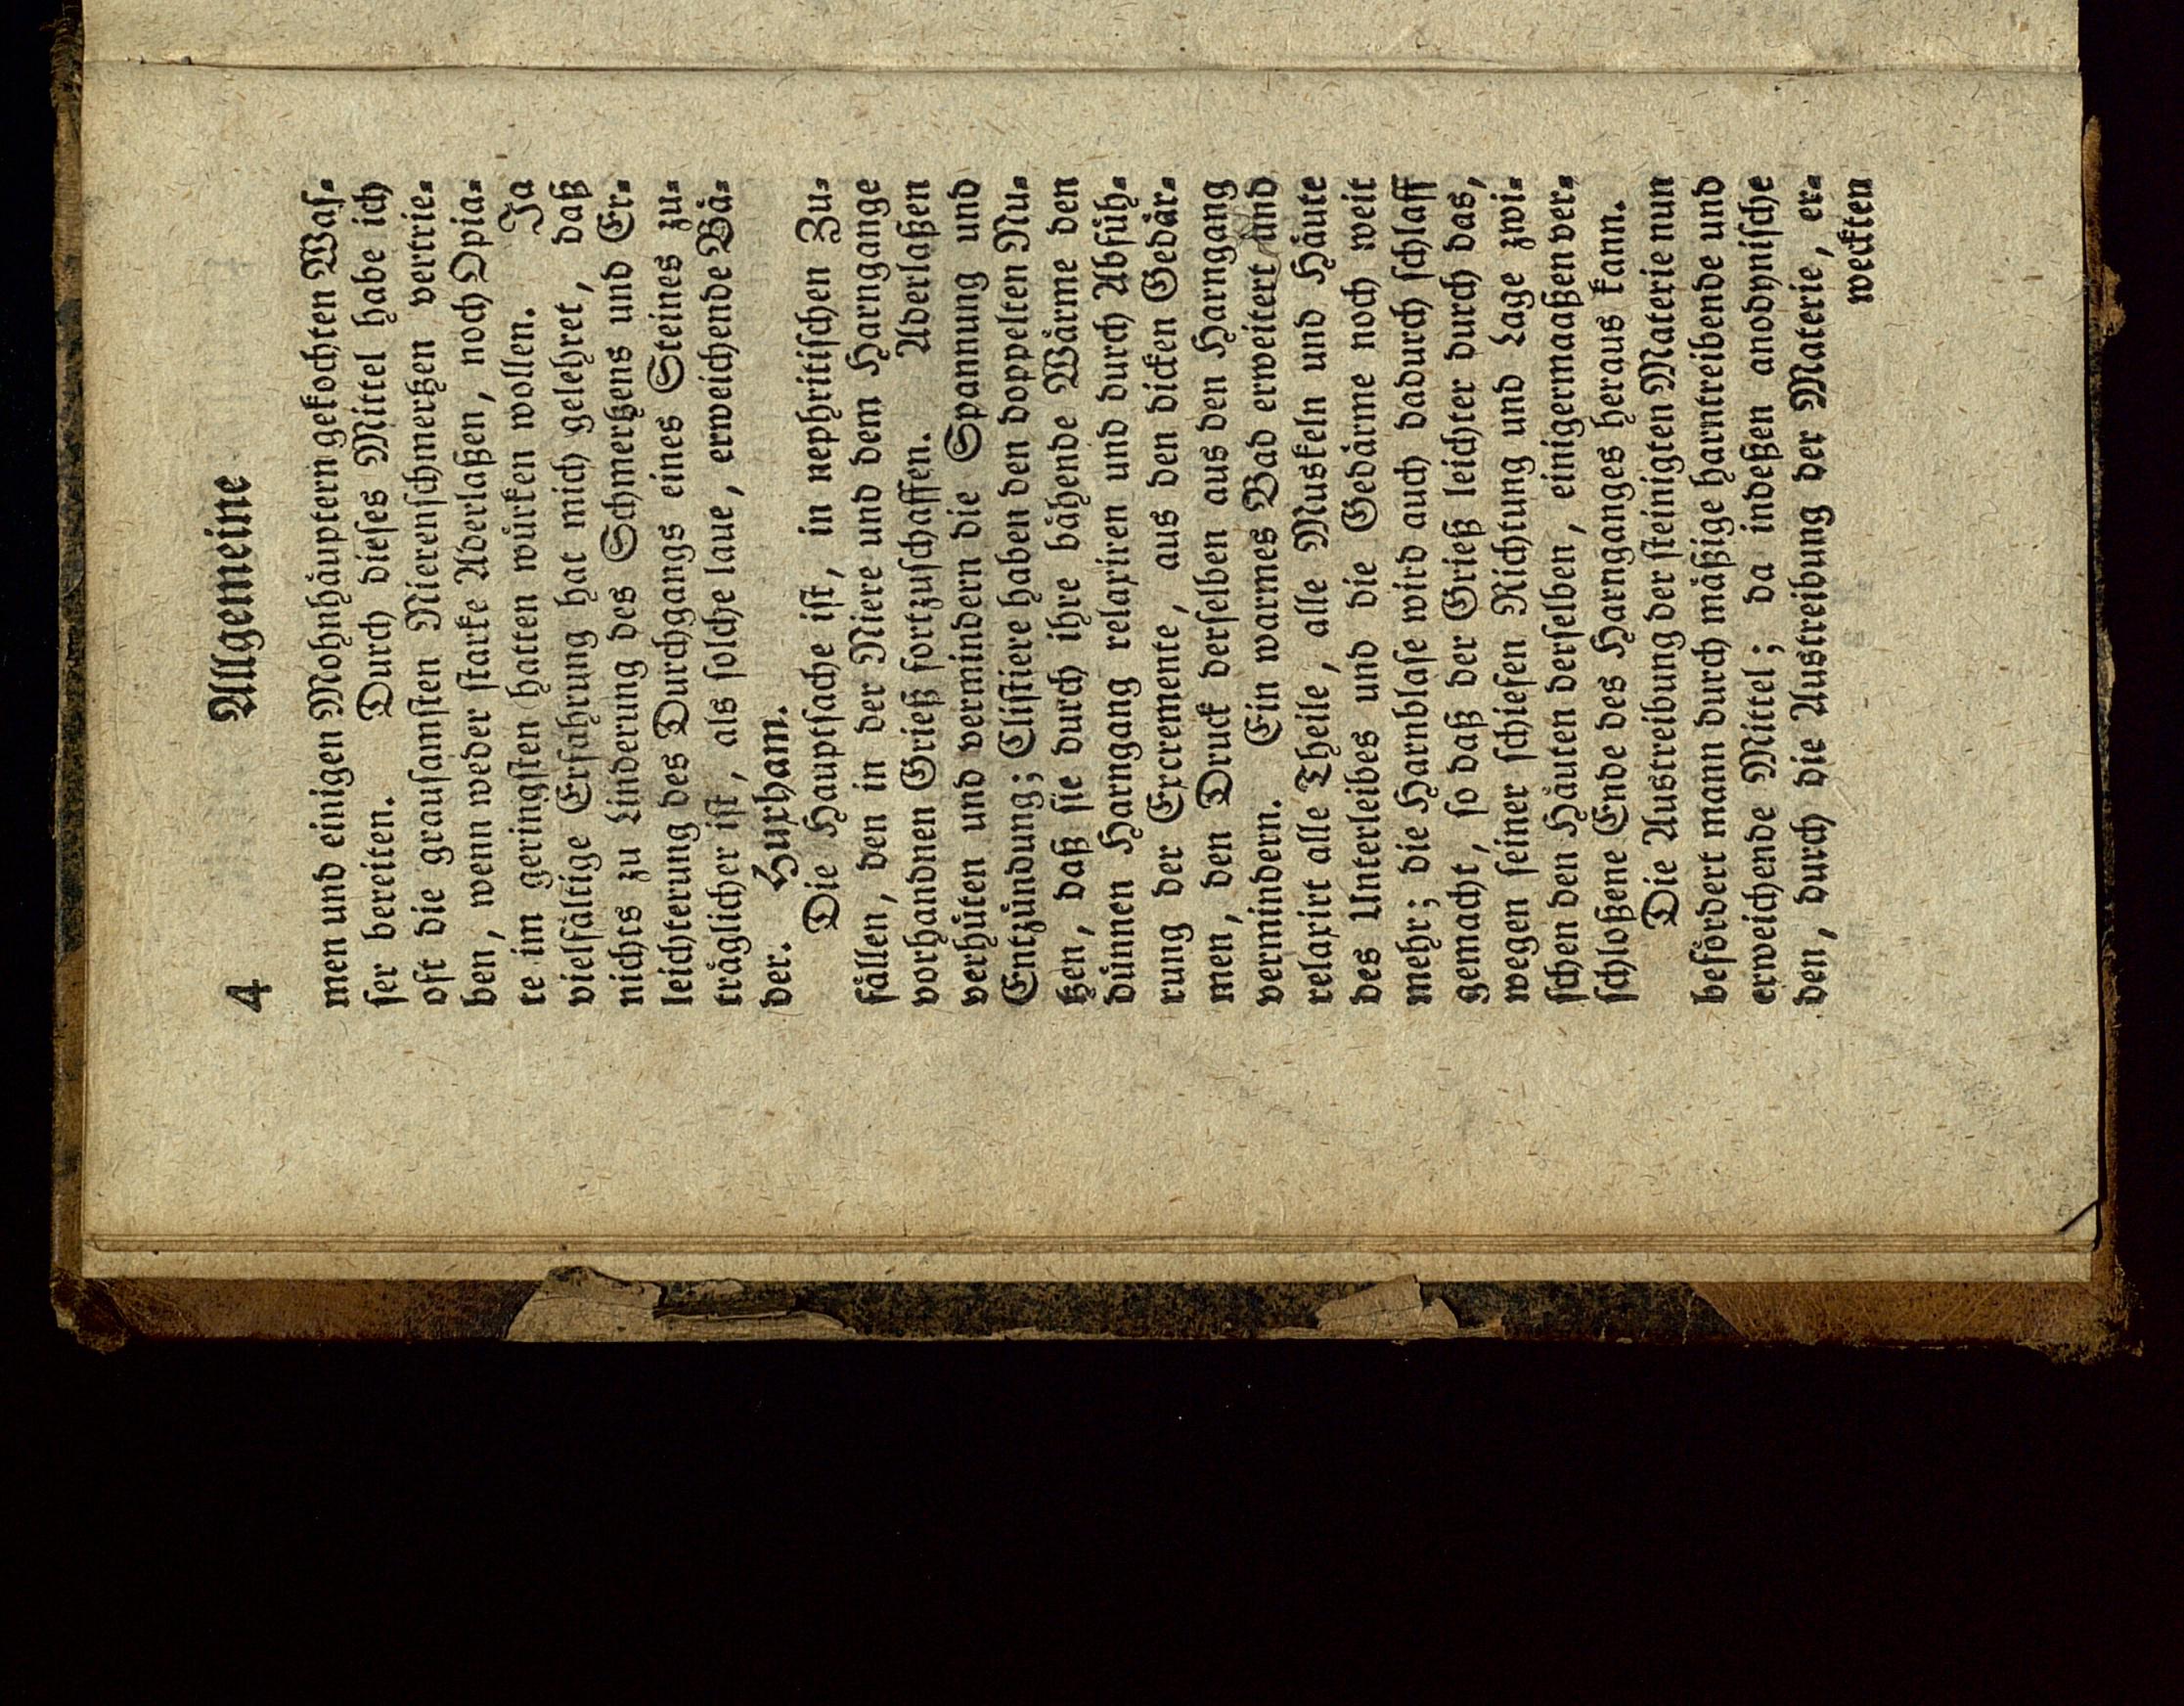 4 Allgemeine
men und einigen Mohnhäuptern gekochten Waſ-
ſer bereiten. Durch dieſes Mittel habe ich
oft die grauſamſten Nierenſchmertzen vertrie-
ben, wenn weder ſtarke Aderlaßen, noch Opia-
te im geringſten hatten würken wollen. Ja
vielfältige Erfahrung hat mich gelehret, daß
nichts zu Linderung des Schmertzens und Er-
leichterung des Durchgangs eines Steines zu-
träglicher iſt, als ſolche laue, erweichende Bä-
der. Huxham.
Die Hauptſache iſt, in nephritiſchen Zu-
fällen, den in der Niere und dem Harngange
vorhandnen Grieß fortzuſchaffen. Aderlaßen
verhüten und vermindern die Spannung und
Entzündung; Cliſtiere haben den doppelten Nu-
tzen, daß ſie durch ihre bähende Wärme den
dünnen Harngang relaxiren und durch Abfüh-
rung der Excremente, aus den dicken Gedär-
men, den Druck derſelben aus den Harngang
vermindern. Ein warmes Bad erweitert und
relaxirt alle Theile, alle Muskeln und Häute
des Unterleibes und die Gedärme noch weit
mehr; die Harnblaſe wird auch dadurch ſchlaff
gemacht, ſo daß der Grieß leichter durch das,
wegen ſeiner ſchiefen Richtung und Lage zwi-
ſchen den Häuten derſelben, einigermaaßen ver-
ſchloßene Ende des Harnganges heraus kann.
Die Austreibung der ſteinigten Materie nun
befördert mann durch mäßige harntreibende und
erweichende Mittel; da indeßen anodyniſche
den, durch die Austreibung der Materie, er-
weckten